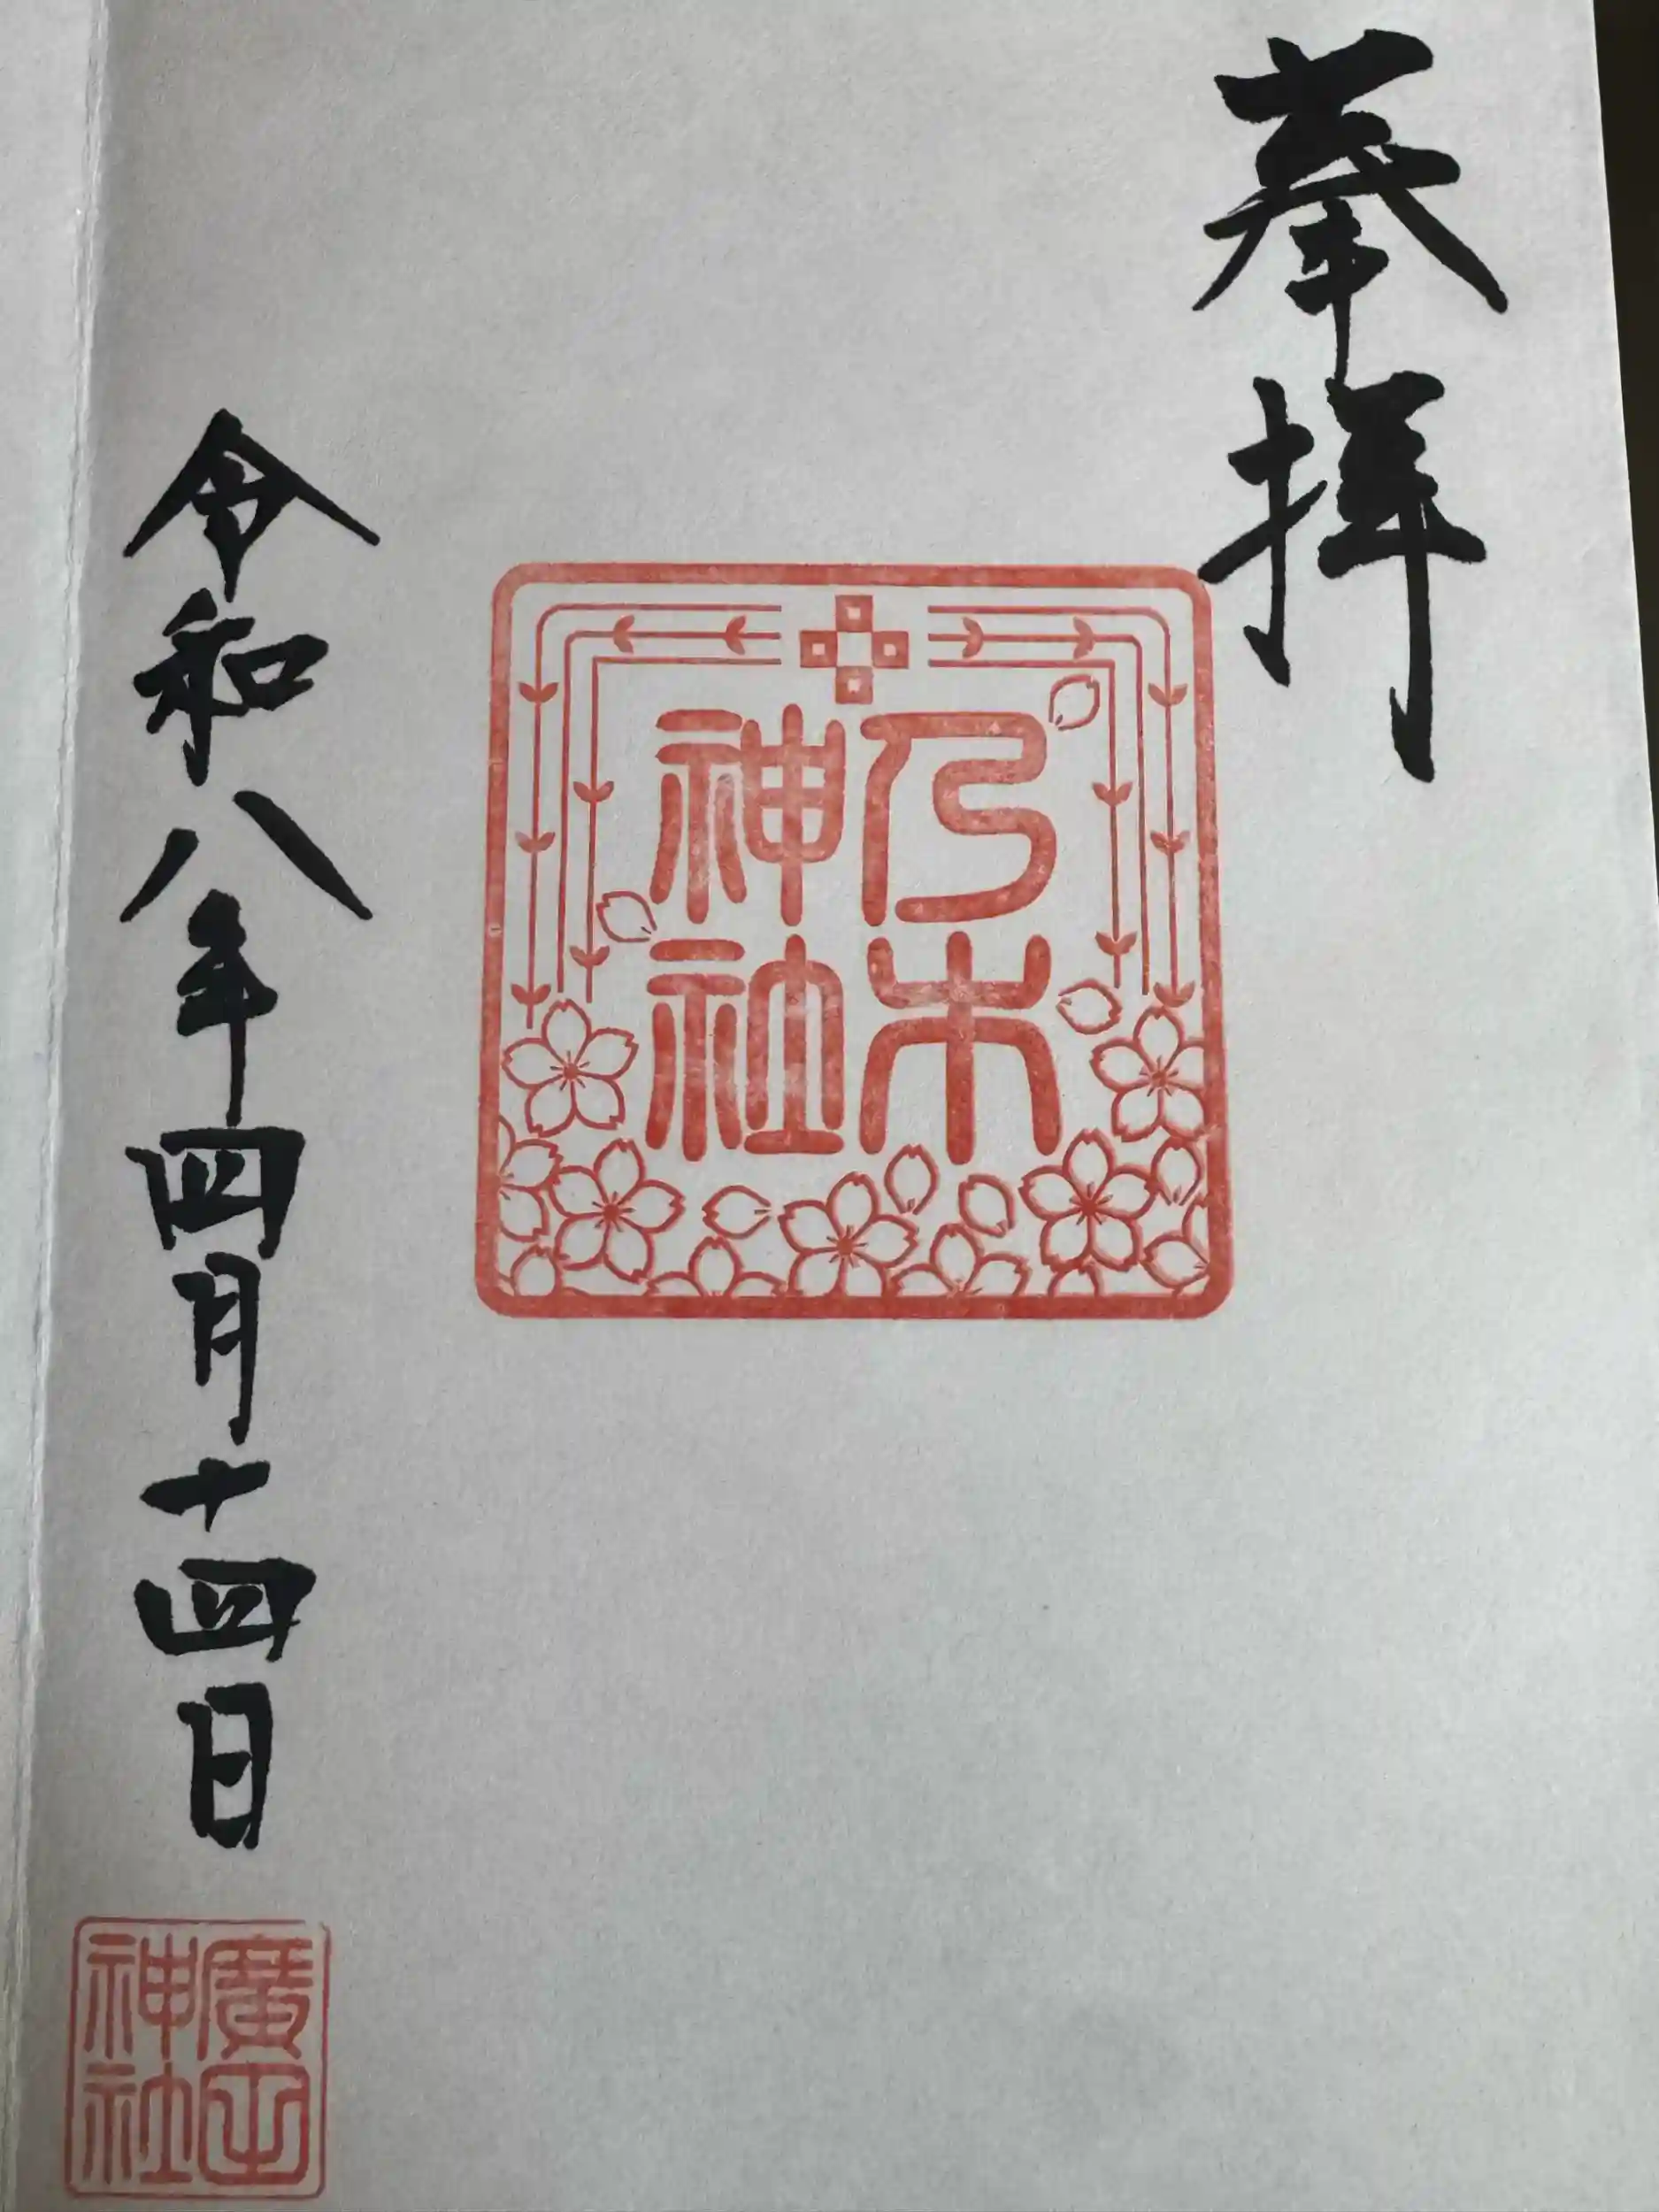 奉拝
乃木
神社
令和八年四月十四日
廣田
神社